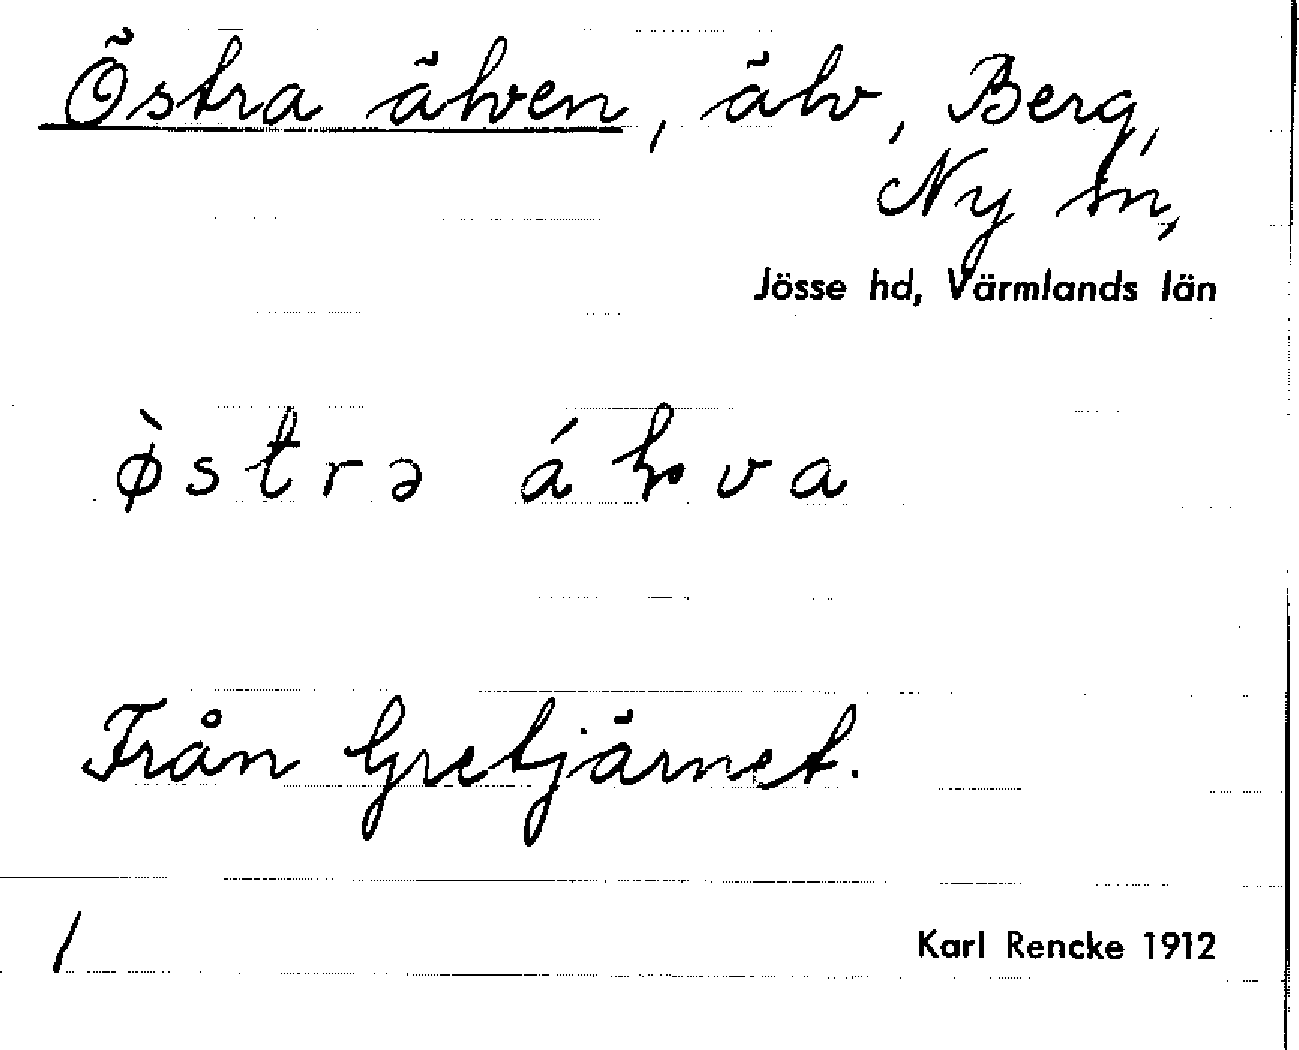 Östra älven, älv, Berg,
Ny sn,
Jösse hd, Värmlands län
ø̀strə áɫva
Från Gretjärnet.
1
Karl Rencke 1912